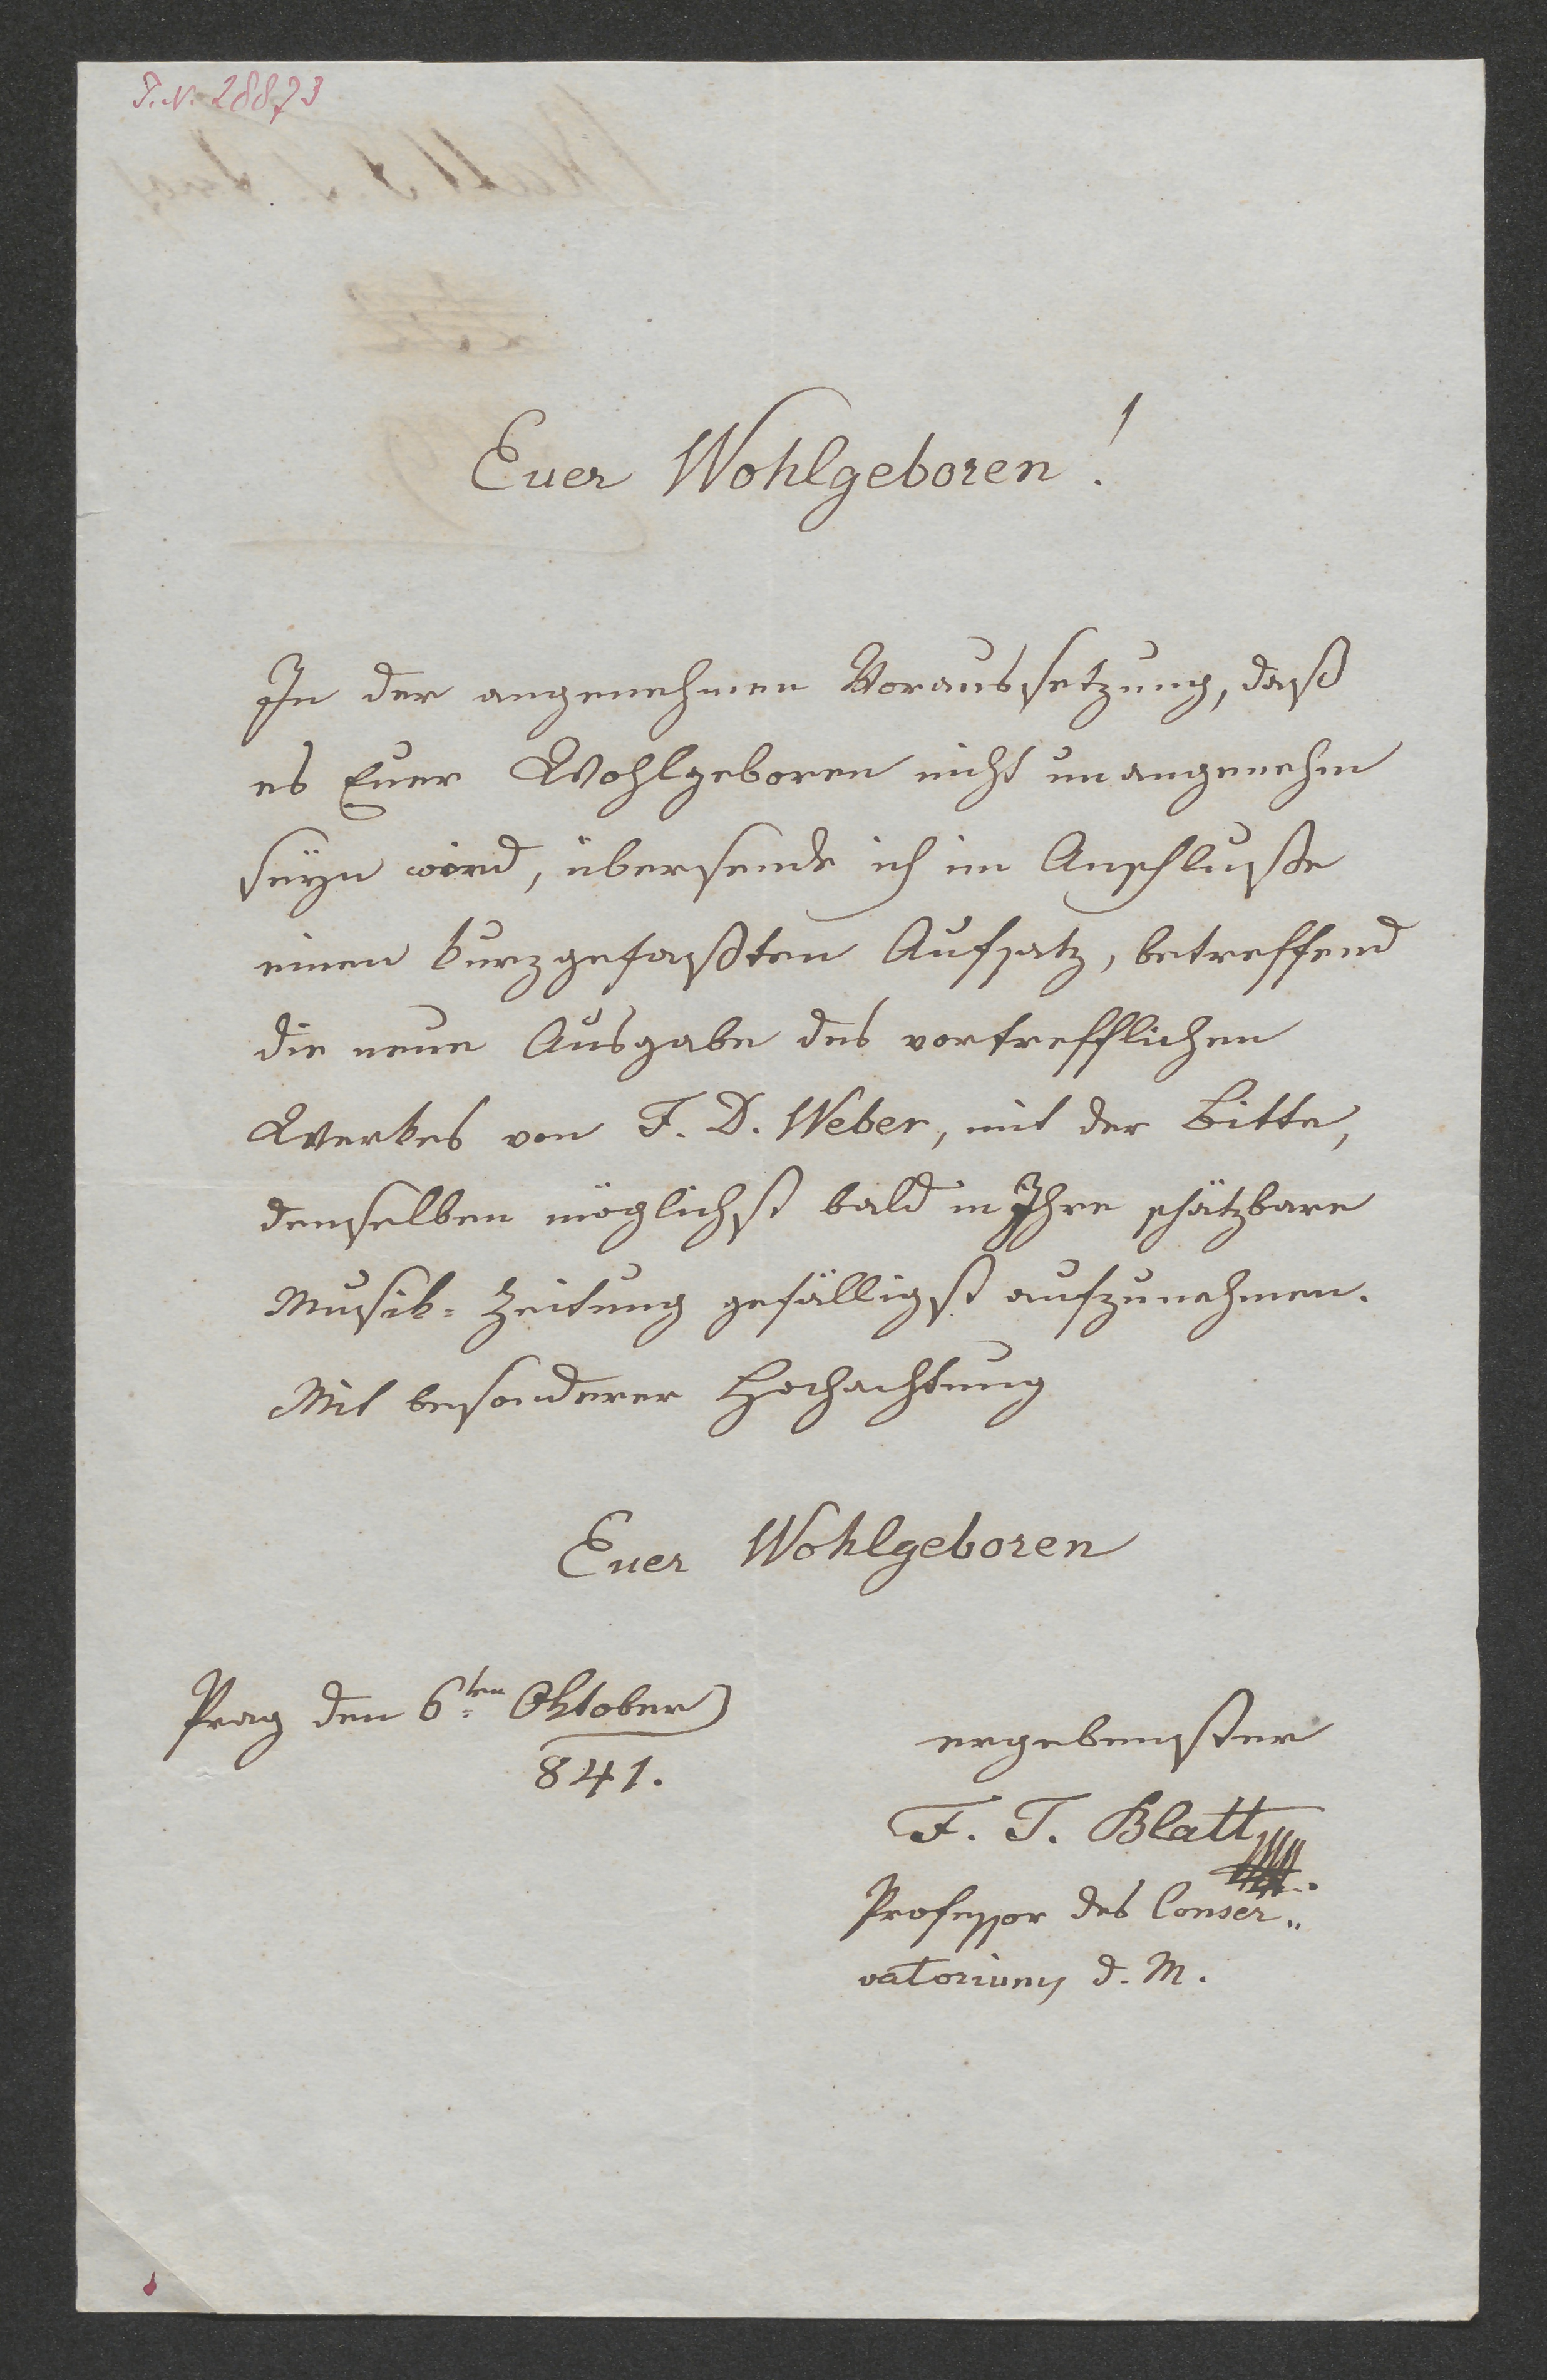 I.N. 28873
Euer Wohlgeboren!
In der angenehmen Voraussetzung, daß
es Euer Wohlgeboren nicht unangenehm
seÿn wird, übersende ich im Anschluße
einen kurzgefaßten Aufsatz, betreffend
die neue Ausgabe des vortrefflichen
Werkes von F. D. Weber, mit der Bitte,
denselben möglichst bald in Ihre schätzbare
Musik=Zeitung gefälligst aufzunehmen.
Mit besonderer Hochachtung
Euer Wohlgeboren
Prag den 6ten Oktober
841.
ergebenster
F. T. Blatt
Professor des Conser„
vatoriums d. M.